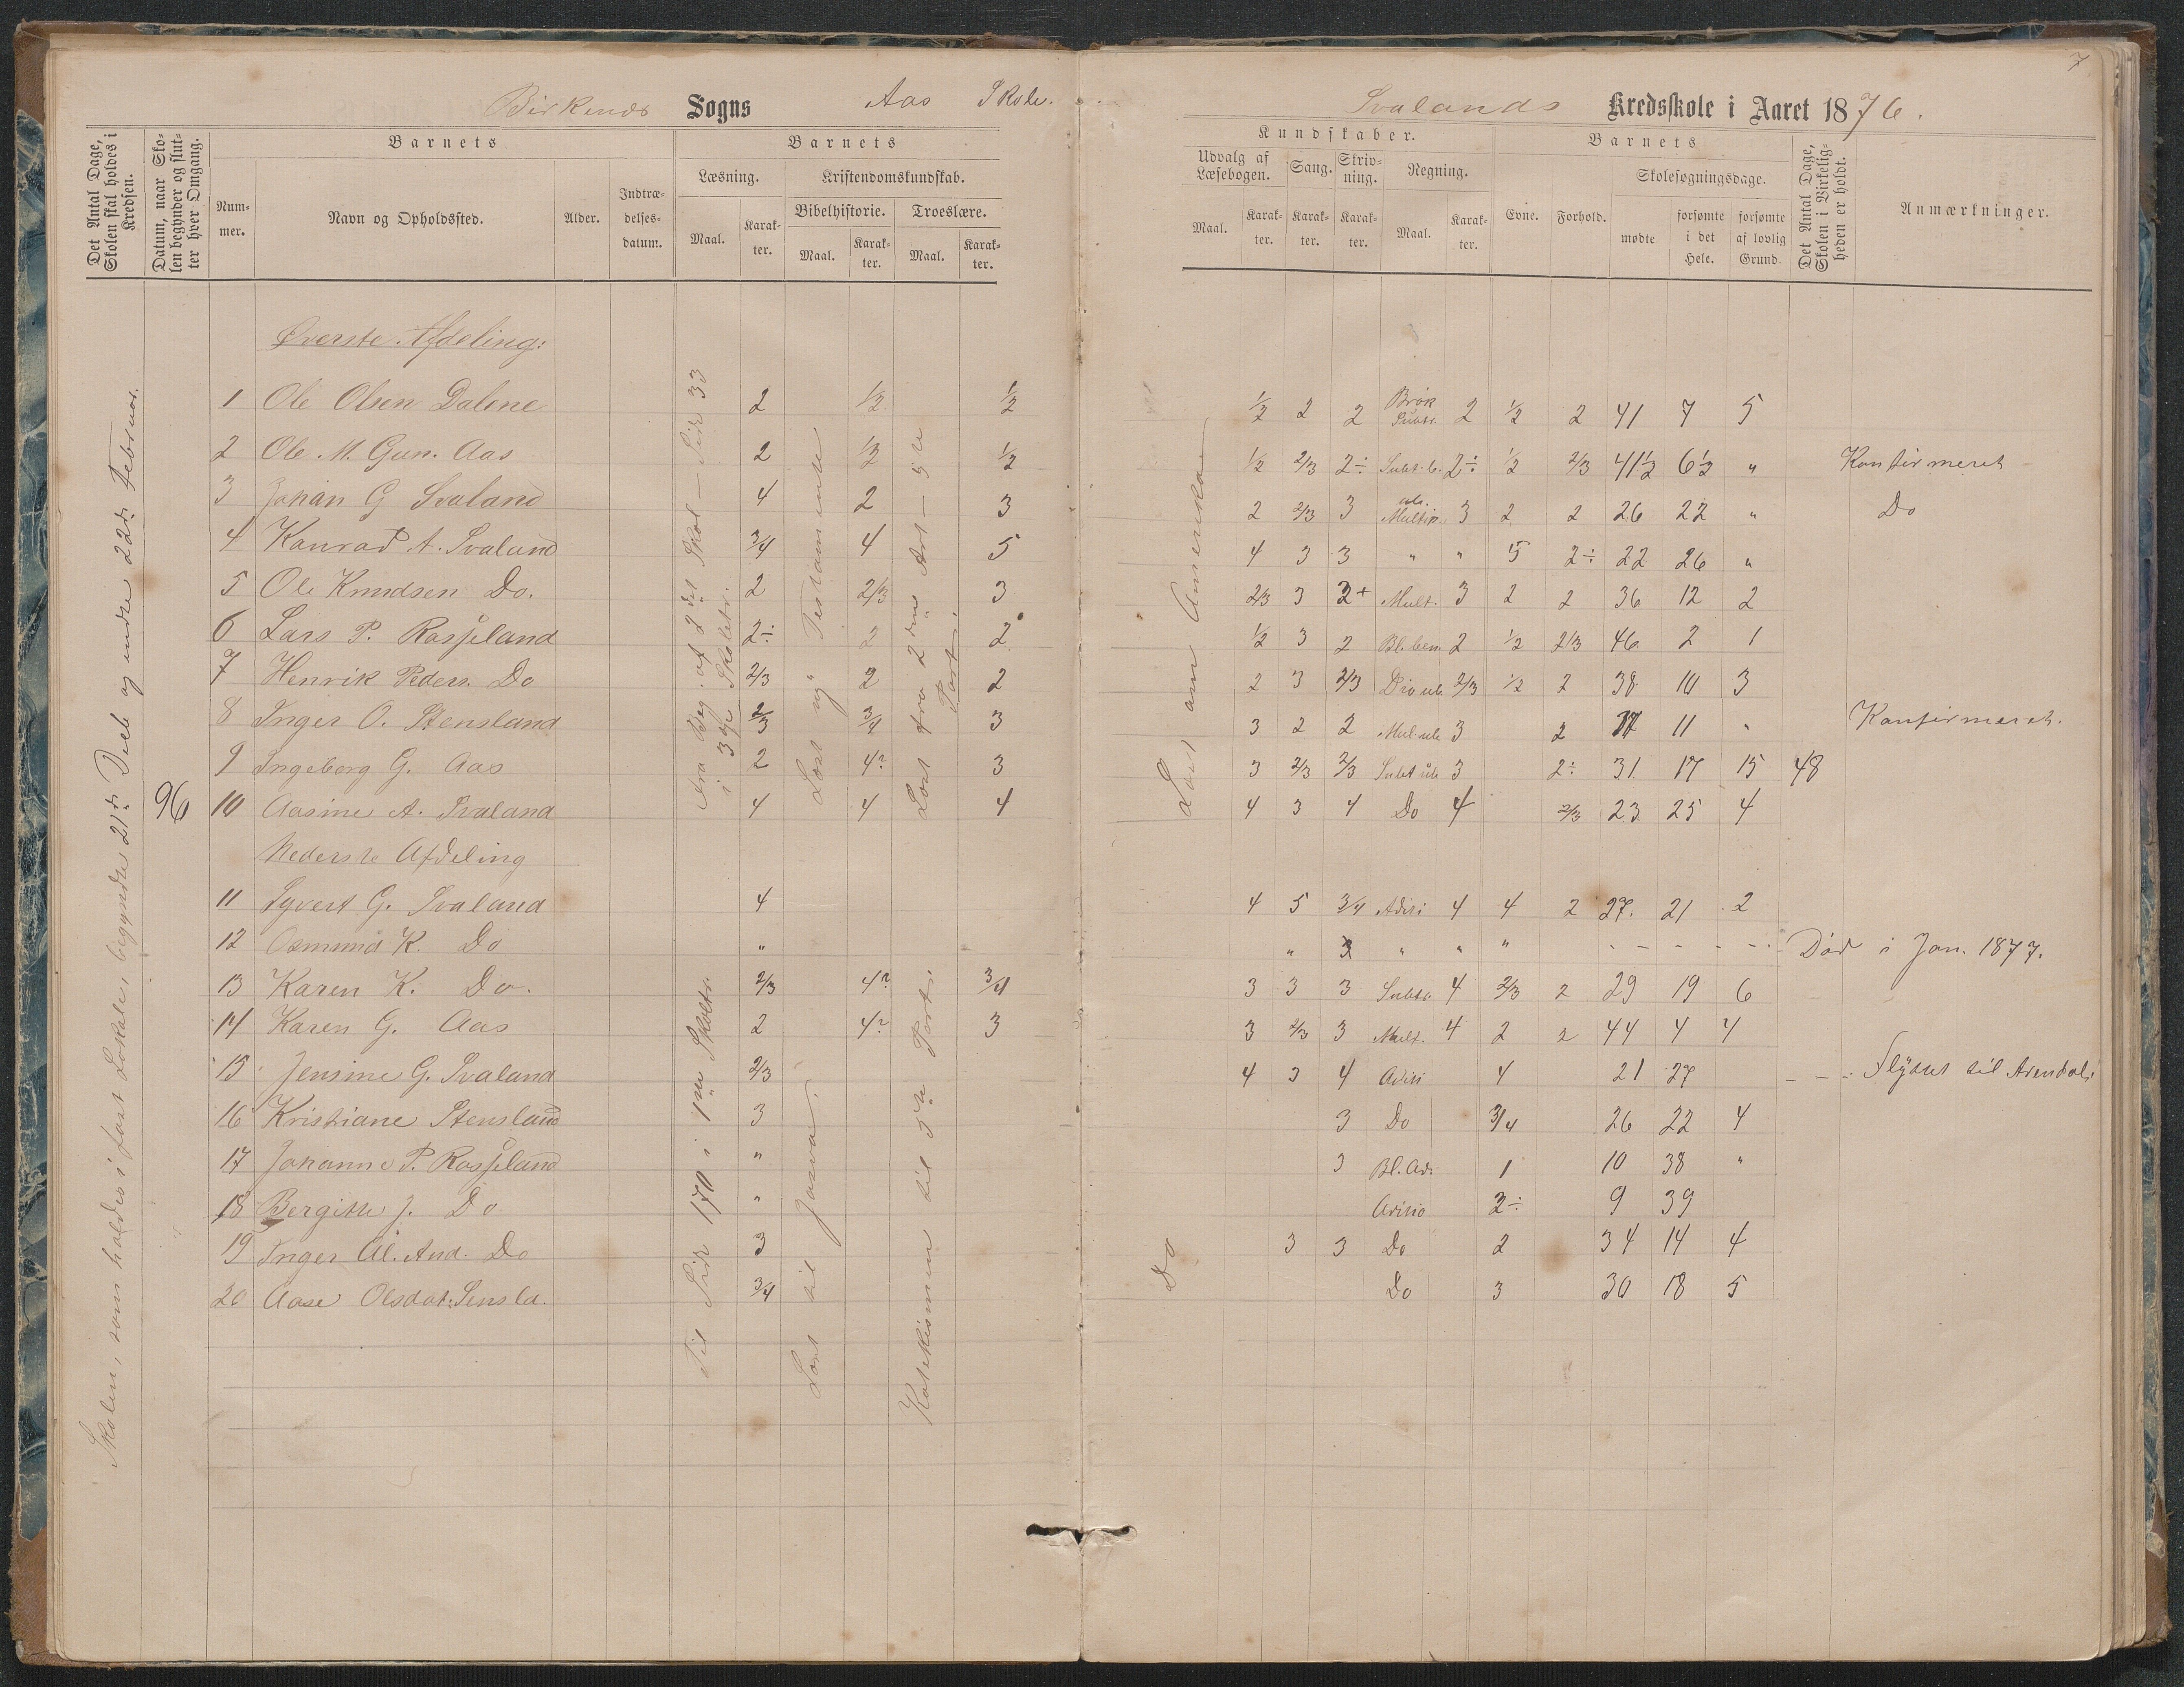 7
Birkenes Sogns Aas Skole.
Svalands Kredsskole i Aaret 1876.
Det Antal Dage, Skolen skal holdes i Kredsen.
Datum, naar Skolen begynder og slutter hver Omgang.
Barnets
Nummer.
Navn og Opholdssted.
Alder.
Indtrædelsesdatum.
Barnets
Læsning.
Maal.
Karakter.
Kristendomskundskab.
Bibelhistorie.
Maal.
Karakter.
Troeslære.
Maal.
Karakter.
Kundskaber.
Udvalg af Læsebogen.
Maal.
Karakter.
Sang.
Karakter.
Skrivning.
Karakter.
Regning.
Maal.
Karakter.
Barnets
Evne.
Forhold.
Skolesøgningsdage.
mødte
forsømte i det Hele.
forsømte af lovlig Grund.
Det Antal Dage, Skolen i Virkeligheden er holdt.
Anmærkninger.
Skolen, som holdes i fast Lokale, begyndte 21de Decb. og endte 22de Februar.
96
Øverste Afdeling:
1 Ole Olsen Dalene 2 1/2 1/2 1/2 2 2 Brøk Subtr. 2 1/2 2 41 7 5
2 Ole M. Gun. Aas 2 1/2 1/2 1/2 2/3 2÷ Subt. b. 2÷ 1/2 2/3 41 1/2 6 1/2 " Konfirmeret
3 Johan G Svaland 4 2 3 2 2/3 3 Multip. 3 2 2 26 22 " Do
4 Konrad A. Svaland 3/4 4 5 4 3 3 " " 5 2÷ 22 26 "
5 Ole Knudsen Do. 2 2/3 3 2/3 3 2+ Mult. 3 2 2 36 12 2
6 Lars P. Rosseland 2÷ 2 2 1/2 3 2 Bl. ben. 2 1/2 2/3 46 2 1
7 Henrik Peders. Do 2/3 2 2 2 3 2/3 Div ub. 2/3 1/2 2 38 10 3
8 Inger O. Stensland 2/3 3/4 3 3 2 2 Mul. ub 3 2 37 11 " Konfirmeret.
9 Ingeborg G. Aas 2 4? 3 3 2/3 2/3 Subt ub 3 2÷ 31 17 15 48
10 Aasine A. Svaland 4 4 4 4 3 4 Do 4 2/3 23 25 4
Fra Beg. af 2det Skol - Side 33 i 3die Skoletr.
Læst ny Testamente
Læst fra 2den Art - 5te Part.
Læst om Amerika
Nederste Afdeling
11 Syvert G. Svaland 4 4 5 3/4 Adisi 4 4 2 27. 21 2
12 Osmund K. Do " " 3 " " " - - - - - Død i Jan. 1877.
13 Karen K. Do. 2/3 4? 3/4 3 3 3 Subtr. 4 2/3 2 29 19 6
14 Karen G. Aas 2 4? 3 3 2/3 3 Mult. 4 2 2 44 4 4
15 Jensine G. Svaland 2/3 4 3 4 Adisi 4 21 27 - - - Flyttet til Arendal.
16 Kristiane Stensland 3 3 Do 3/4 26 22 4
17 Johanne P. Rosseland " 3 Bl. Ad. 1 10 38 "
18 Bergitte J. Do " Adisio 2÷ 9 39
19 Inger Al. And. Do 3 3 3 Do 2 34 14 4
20 Aase Olsdat. Stensld. 3/4 Do 3 30 18 5
Til Side 170 i 1ste Skoletr.
Læst til Josva.
Katekismen til 5te Part.
Do